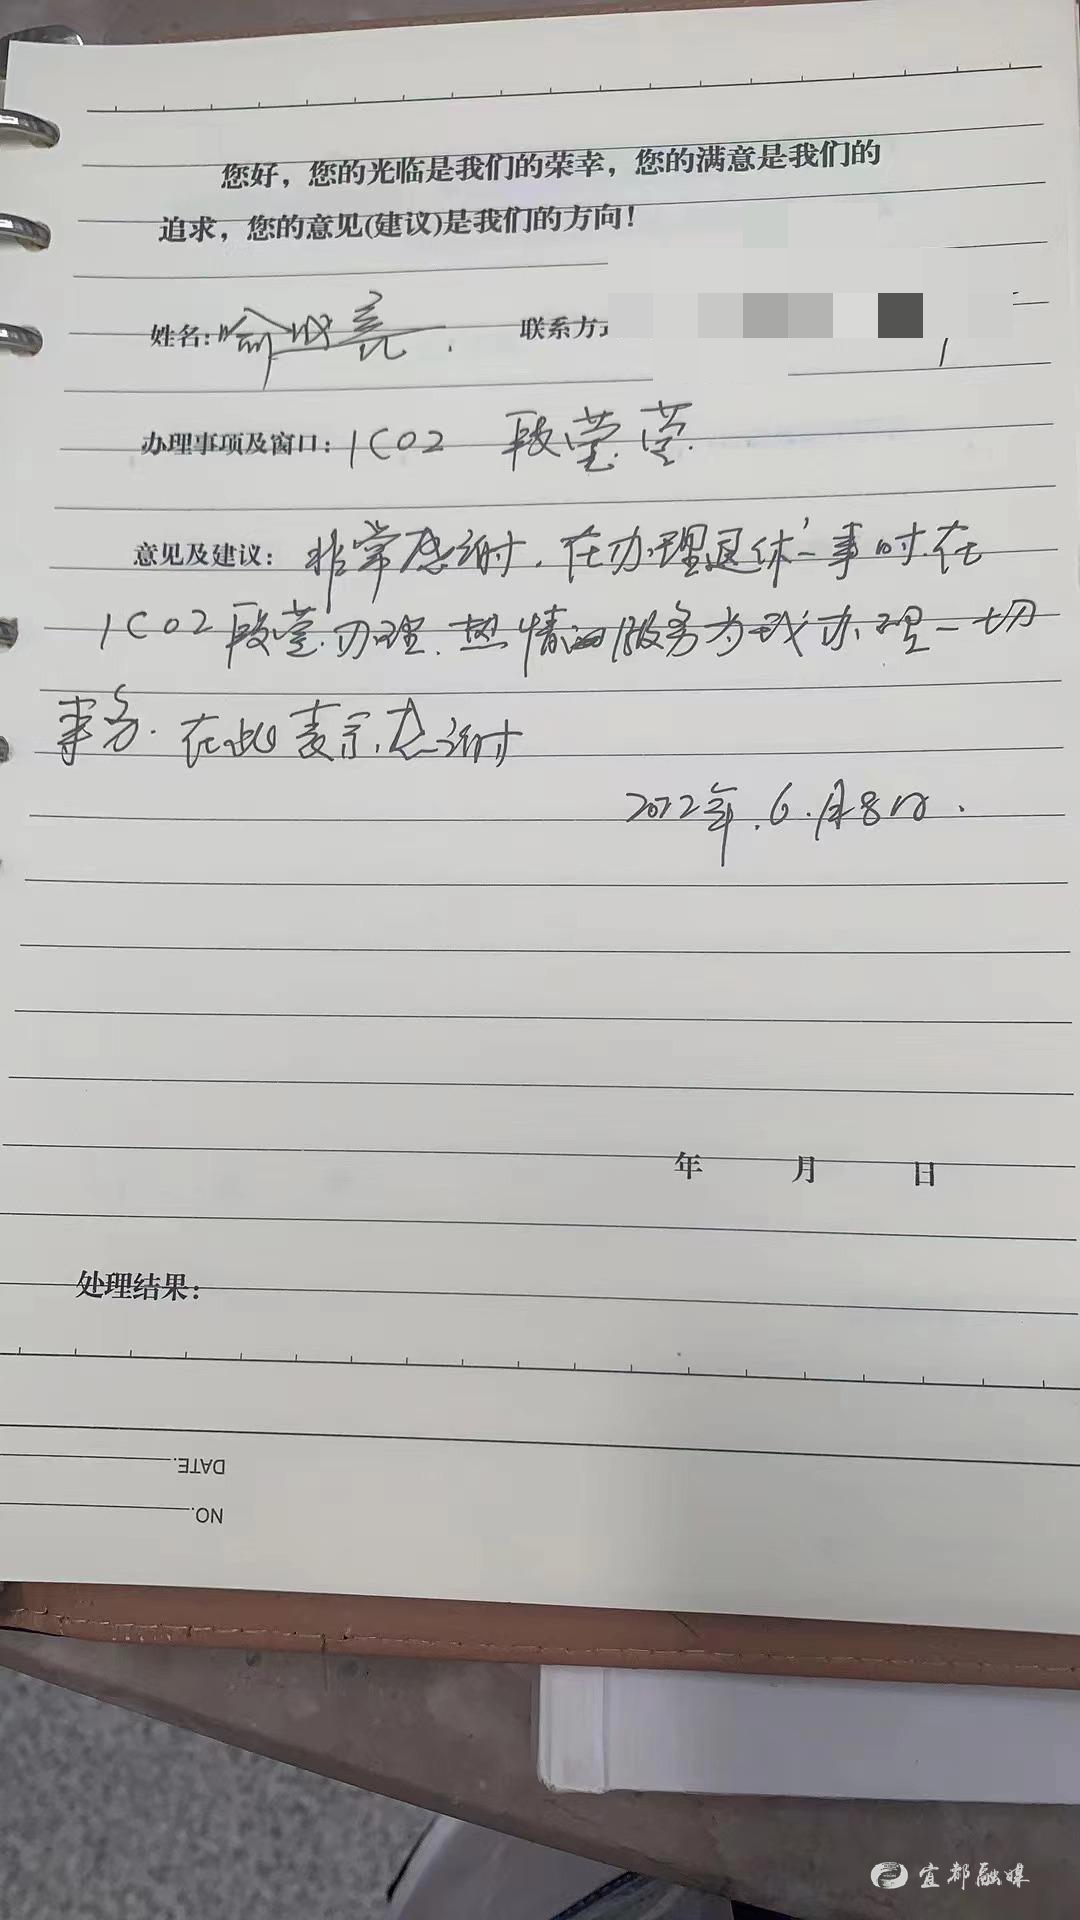 您好，您的光临是我们的荣幸，您的满意是我们的
追求，您的意见(建议)是我们的方向！
姓名：喻 亮 联系方式
办理事项及窗口：1C02 段莹莹
意见及建议：非常感谢，在办理退休一事时在
1C02段莹办理，热情的服务为我办理一切
事务．在此表示感谢
2022年.6.月8日.
年 月 日
处理结果：
DATE.
NO.
宜都融媒